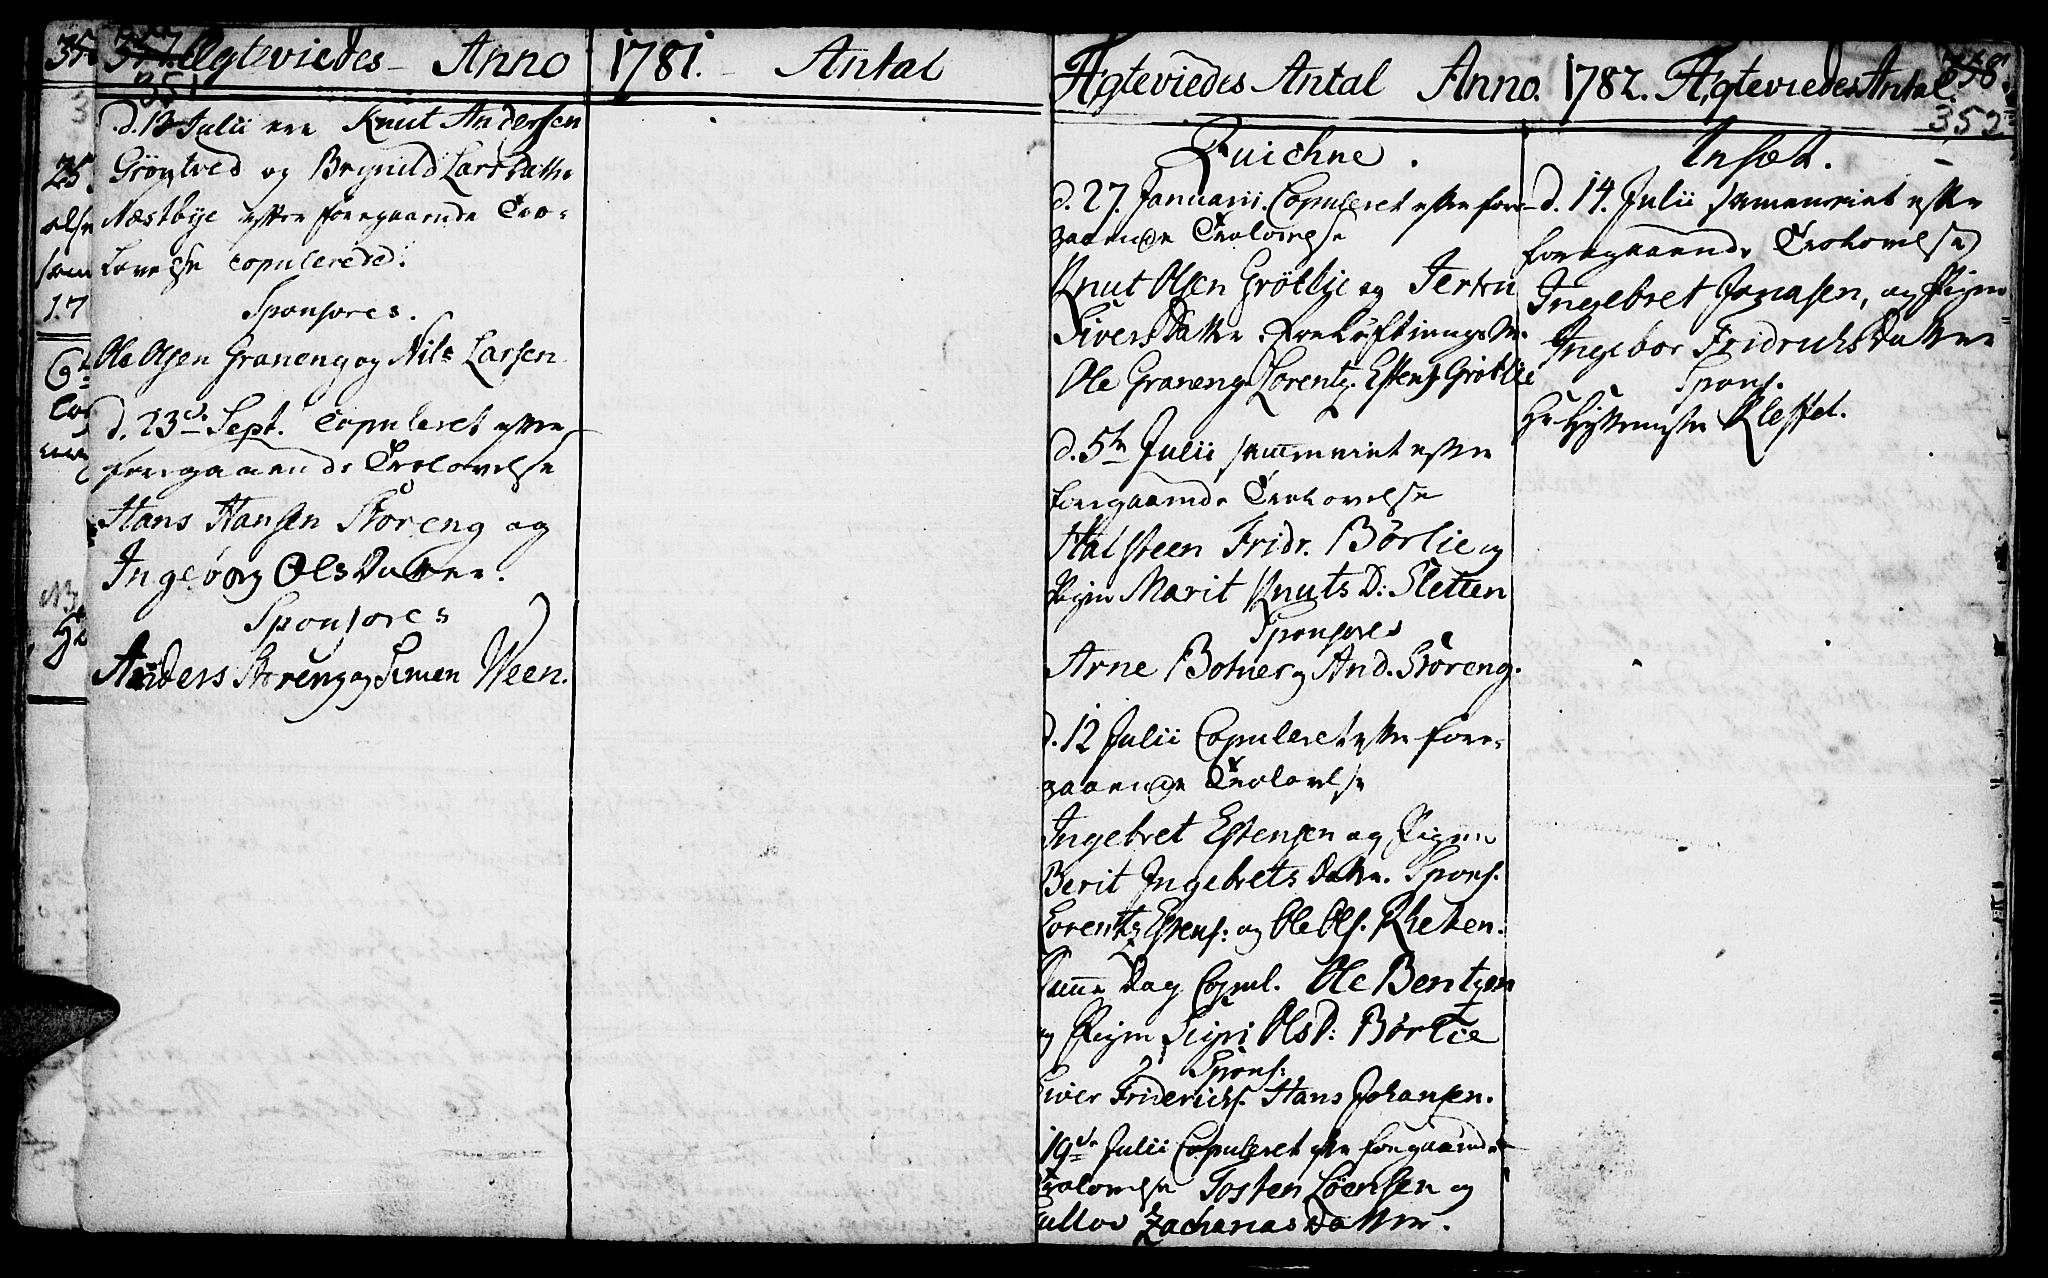 Ægteviedes Anno 1781. Antal
351
d. 13 Julii ere Knut Andersen
Grøntved og Brynild Larsdatter
Næstbye efter foregaaende Tro-
lovelse copulerede.
Sponsores.
Ole Olsen Graneng og Nils Larsen
d. 23de Sept. Copuleret efter
foregaaende Trolovelse
Hans Hansen Storeng og
Ingeborg OlsDatter.
Sponsores
Anders Storeng og Simen Ween.
Ægteviedes Antal Anno. 1782. Ægteviedes Antal.
358.
352
Quichne.
d. 27. Januarii. Copuleret efter fore-
gaaende Trolovelse
Knut Olsen Grötlie og Jertru
SiversDatter
Ole Graneng Lorentz Estens. Grötlie
d. 5te Julii sammenviet efter
foregaaende Trolovelse
Halsteen Fridr. Börlie og
Pigen Marit Knuts D: Sletten
Sponsores
Arne Botner og And. Storeng.
d. 12 Julii Copuleret efter fore-
gaaende Trolovelse
Ingebret Estensen og Pigen
Berit Ingebrets Datter. Spons.
Lorentz Estens: og Ole Ols. Rheten.
Samme Dag Copul. Ole Bentzen
og Pigen Sigri OlsD: Börlie
Spons:
Siver Friderichs. Hans Johansen.
19de Julii Copuleret efter foregaaende
Trolovelse Tosten Löensen og
Zacharias Datter.
Inset.
d. 14. Julii sammenviet efter
foregaaende Trolovelse
Ingebret Jonasen, og Pigen
Ingebor FridrichsDatter
Spons.
Hr Hyttemester Kleffel.